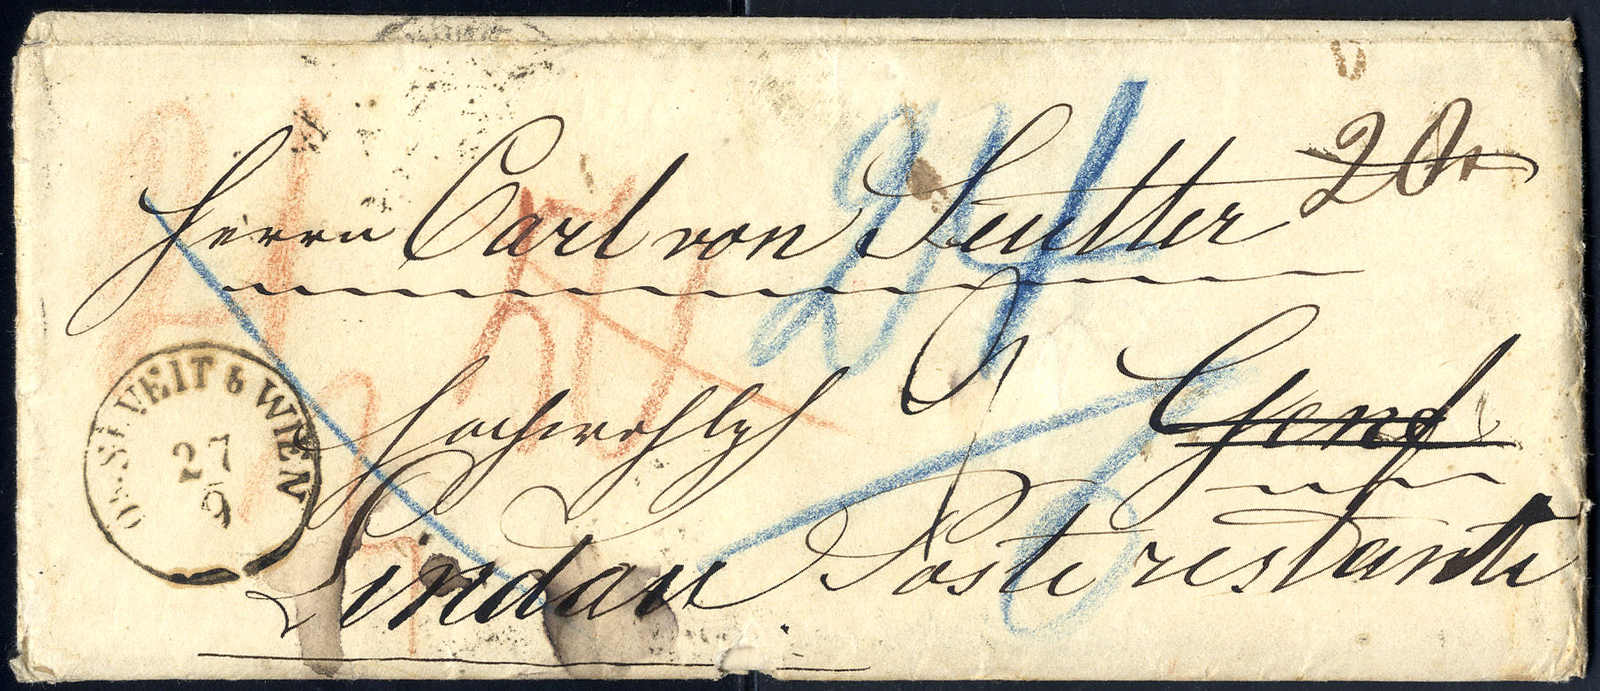 20
Herrn Carl von Seutter
24
Genf
Lindau Poste restante
OB. ST. VEIT b WIEN
27
9